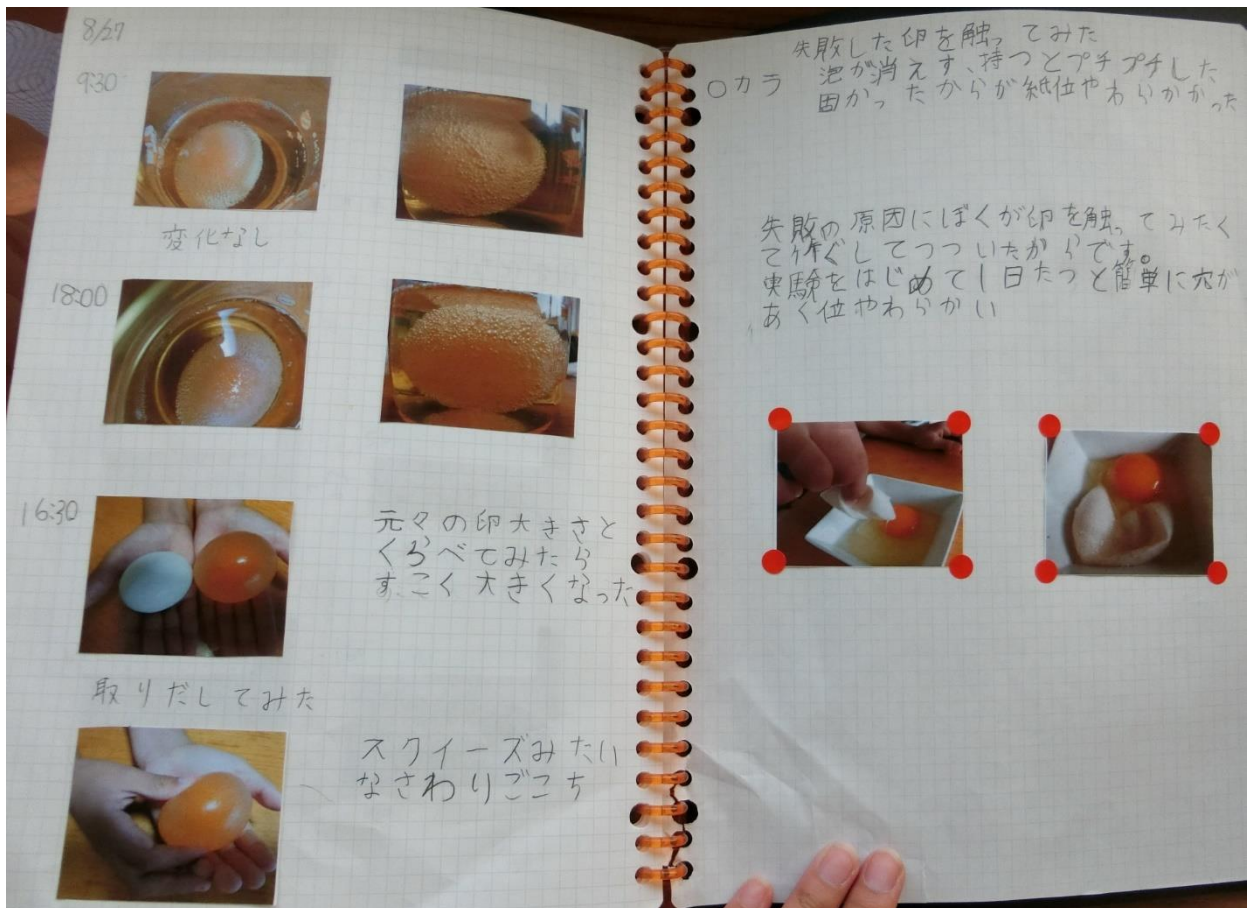 8/27
9:30
変化なし
18:00
16:30
元々の卵大きさと
くらべてみたら
すごく大きくなった
取りだしてみた
スクイーズみたい
なさわりごこち
失敗した卵を触ってみた
○カラ 泡が消えず、持つとプチプチした
固かったからが紙位やわらかかった
失敗の原因にぼくが卵を触ってみたく
てしてつついたからです。
実験をはじめて1日たつと簡単に穴が
あく位やわらかい